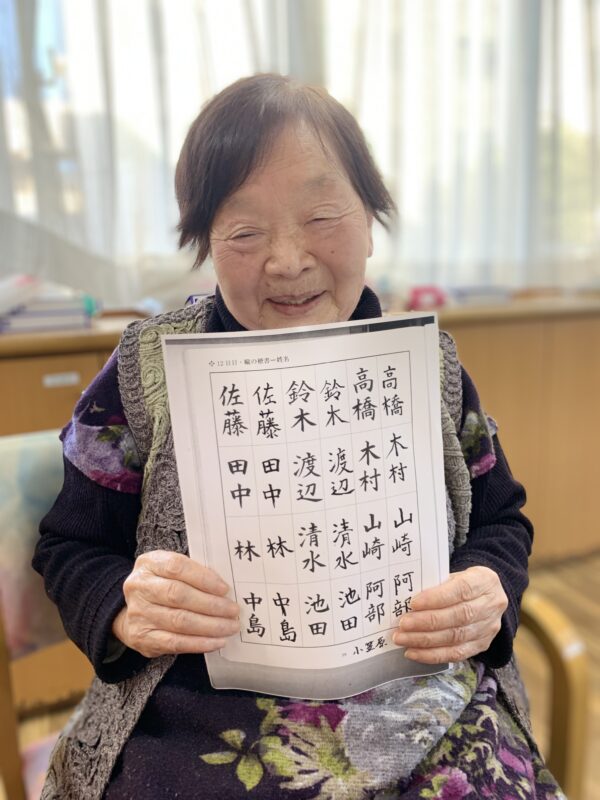 12日目・縦の楷書ー姓名
高橋 木村 山崎 阿部
高橋 木村 山崎 阿部
鈴木 渡辺 清水 池田
鈴木 渡辺 清水 池田
佐藤 田中 林 中島
佐藤 田中 林 中島
小笠原